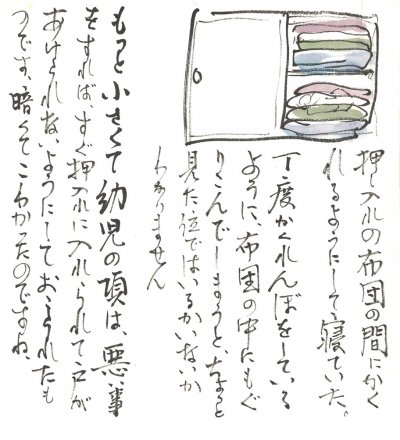 押し入れの布団の間にかく
れるようにして、寝ていた。
丁度かくれんぼをしている
ように、布団の中にもぐ
りこんでしまうと、ちょっと
見た位ではいるかいないか
わかりません
もっと小さくて幼児の頃は、悪い事
をすれば、すぐ押入れに入れられて、戸が
あけられないようにしておこられたも
のです、暗くてこわかったのですね。